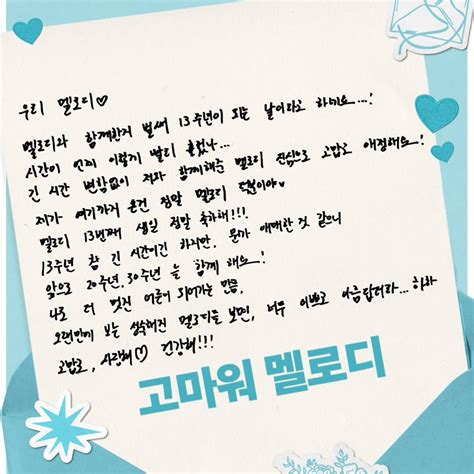 우리 멜로디♡
멜로디와 함께한지 벌써 13주년이 되는 날이라고 하네요...!
시간이 언제 이렇게 빨리 흘렀나...
긴 시간 변함없이 저와 함께해준 멜로디 진심으로 고맙고 애정해요!
제가 여기까지 온건 정말 멜로디 덕분이야♥
멜로디 13번째 생일 정말 축하해!!!
13주년 참 긴 시간이긴 하지만, 뭔가 애매한 것 같으니
앞으로 20주년, 30주년 을 함께 해요!
나도 더 멋진 어른이 되어가는 만큼,
오랜만에 보는 성숙해진 멜로디들 보면, 너무 이쁘고 아름답더라... 하하
고맙고, 사랑해♡ 건강해!!!
고마워 멜로디